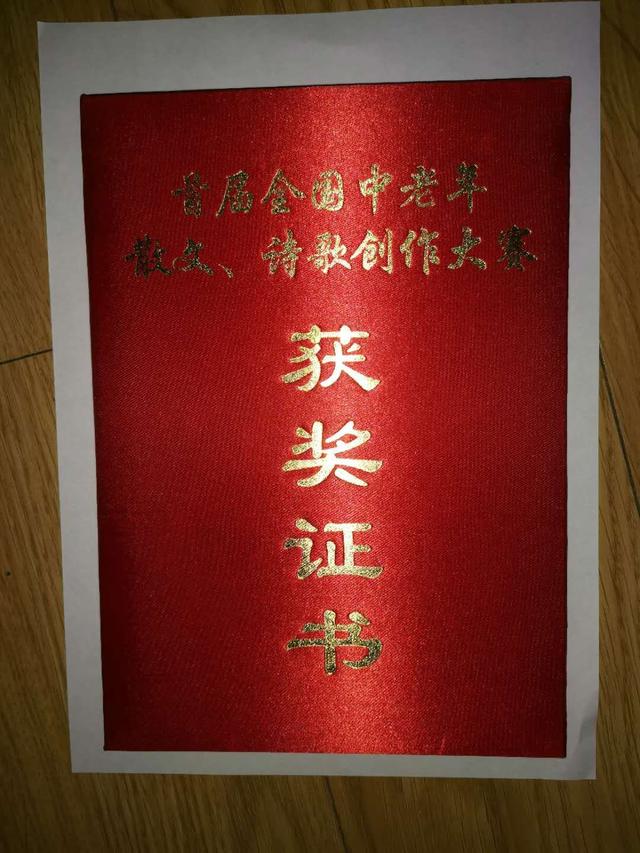 首届全国中老年
散文、诗歌创作大赛
获奖证书